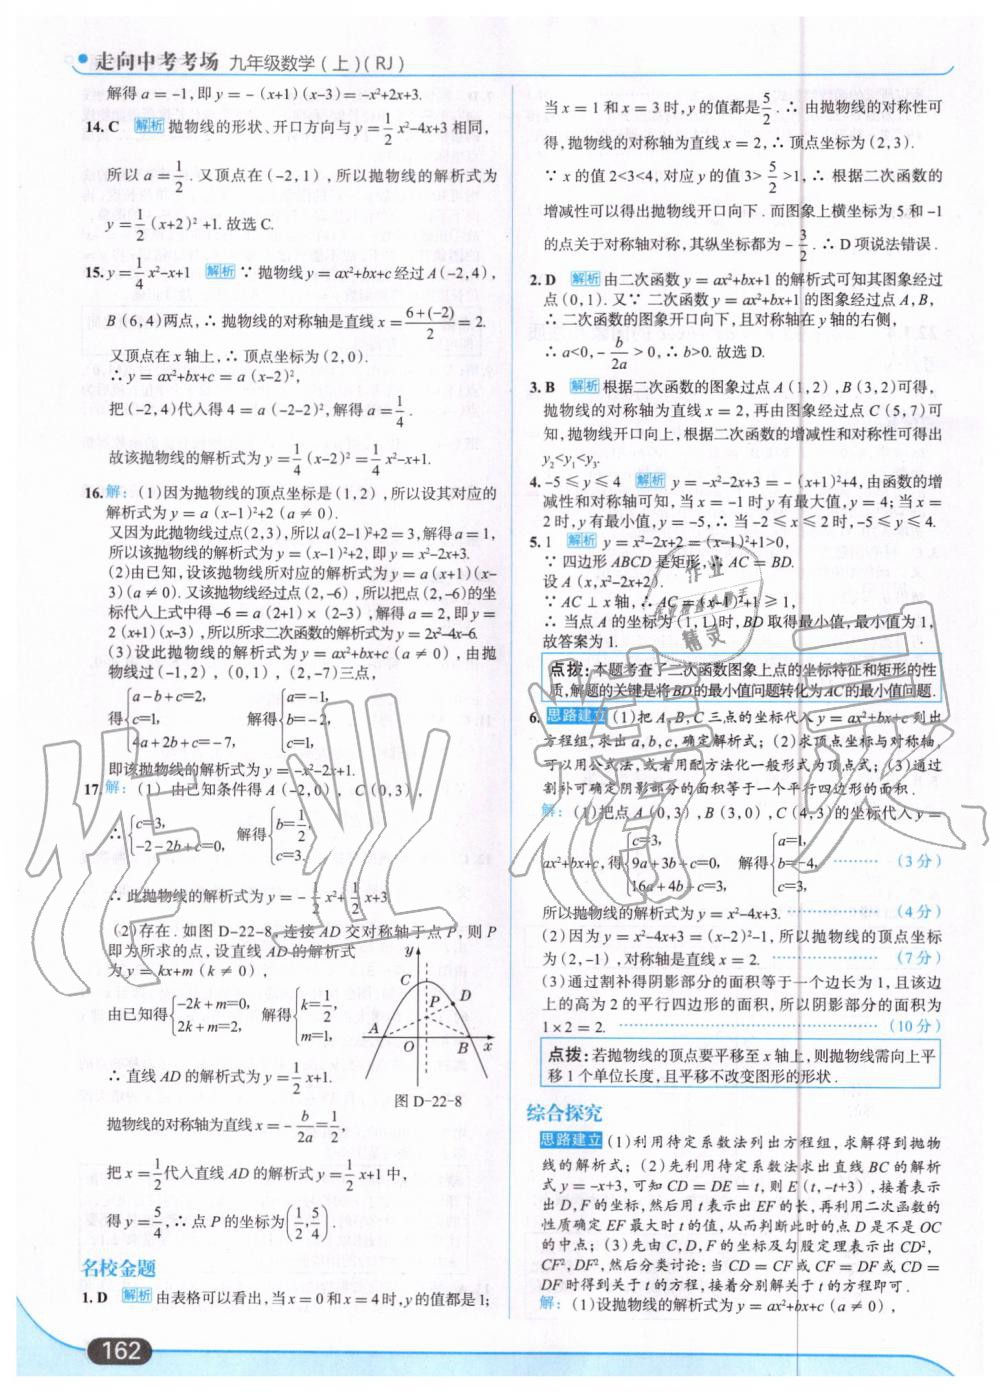 走向中考考场 九年级数学(上)(RJ)
解得 a=-1,即 y=-(x+1)(x-3)=-x²+2x+3.
14. C 解析 抛物线的形状、开口方向与 y=1/2 x²-4x+3 相同,
所以 a=1/2. 又顶点在(-2,1),所以抛物线的解析式为
y=1/2 (x+2)²+1. 故选 C.
15. y=1/4 x²-x+1 解析 ∵ 抛物线 y=ax²+bx+c 经过 A(-2,4),
B(6,4)两点,∴ 抛物线的对称轴是直线 x=(6+(-2))/2=2.
又顶点在 x 轴上,∴ 顶点坐标为(2,0).
∴ y=ax²+bx+c=a(x-2)²,
把(-2,4)代入得 4=a(-2-2)²,解得 a=1/4.
故该抛物线的解析式为 y=1/4 (x-2)²=1/4 x²-x+1.
16. 解:(1)因为抛物线的顶点坐标是(1,2),所以设其对应的
解析式为 y=a(x-1)²+2(a≠0).
又因为此抛物线过点(2,3),所以 a(2-1)²+2=3,解得 a=1,
所以该抛物线的解析式为 y=(x-1)²+2,即 y=x²-2x+3.
(2)由已知,设该抛物线所对应的解析式为 y=a(x+1)(x-
3)(a≠0). 又该抛物线经过点(2,-6),所以把点(2,-6)的坐
标代入上式中得 -6=a(2+1)×(2-3),解得 a=2,即 y=
2(x+1)(x-3),所以所求二次函数的解析式为 y=2x²-4x-6.
(3)设此抛物线的解析式为 y=ax²+bx+c(a≠0),由抛
物线过(-1,2),(0,1),(2,-7)三点,
得{a-b+c=2, c=1, 4a+2b+c=-7, 解得{a=-1, b=-2, c=1,
即该抛物线的解析式为 y=-x²-2x+1.
17. 解:(1)由已知条件得 A(-2,0),C(0,3),
∴{c=3, -2-2b+c=0, 解得{b=1/2, c=3.
∴ 此抛物线的解析式为 y=-1/2 x²+1/2 x+3.
(2)存在. 如图 D-22-8,连接 AD 交对称轴于点 P,则 P
即为所求的点,设直线 AD 的解析式
为 y=kx+m(k≠0),
由已知得{-2k+m=0, 2k+m=2, 解得{k=1/2, m=1,
∴ 直线 AD 的解析式为 y=1/2 x+1.
抛物线的对称轴为直线 x=-b/2a=1/2,
y
C
P
D
A
O
B
x
图 D-22-8
把 x=1/2 代入直线 AD 的解析式 y=1/2 x+1 中,
得 y=5/4,∴ 点 P 的坐标为(1/2,5/4).
名校金题
1. D 解析 由表格可以看出,当 x=0 和 x=4 时,y 的值都是 1;
当 x=1 和 x=3 时,y 的值都是 5/2. ∴ 由抛物线的对称性可
得,抛物线的对称轴为直线 x=2,∴ 顶点坐标为(2,3).
∵ x 的值 2<3<4,对应 y 的值 3>5/2>1,∴ 根据二次函数的
增减性可以得出抛物线开口向下. 而图象上横坐标为 5 和 -1
的点关于对称轴对称,其纵坐标都为 -3/2. ∴ D 项说法错误.
2. D 解析 由二次函数 y=ax²+bx+1 的解析式可知其图象经过
点(0,1). 又∵ 二次函数 y=ax²+bx+1 的图象经过点 A,B,
∴ 二次函数的图象开口向下,且对称轴在 y 轴的右侧,
∴ a<0,-b/2a>0,∴ b>0. 故选 D.
3. B 解析 根据二次函数的图象过点 A(1,2),B(3,2)可得,
抛物线的对称轴为直线 x=2,再由图象过点 C(5,7)可
知,抛物线开口向上,根据二次函数的增减性和对称性可得出
y₂<y₁<y₃.
4. -5≤y≤4 解析 y=-x²-2x+3=-(x+1)²+4,由函数的增
减性和对称轴可知,当 x=-1 时 y 有最大值,y=4;当 x=
2 时,y 有最小值,y=-5,∴ 当 -2≤x≤2 时,-5≤y≤4.
5. 1 解析 y=x²-2x+2=(x-1)²+1>0,
∵ 四边形 ABCD 是矩形,∴ AC=BD.
设 A(x,x²-2x+2).
∵ AC⊥x 轴,∴ AC=(x-1)²+1≥1,
∴ 当点 A 的坐标为(1,1)时,BD 取得最小值,最小值为 1,
故答案为 1.
点拨:本题考查了二次函数图象上点的坐标特征和矩形的性
质,解题的关键是将 BD 的最小值问题转化为 AC 的最小值问题.
6. 思路建立 (1)把 A,B,C 三点的坐标代入 y=ax²+bx+c 列出
方程组,求出 a,b,c,确定解析式;(2)求顶点坐标与对称轴,
可以用公式法,或者用配方法化一般形式为顶点式;(3)通过
割补可确定阴影部分的面积等于一个平行四边形的面积.
解:(1)把点 A(0,3),B(3,0),C(4,3)的坐标代入 y=
ax²+bx+c,得{c=3, 9a+3b+c=0, 16a+4b+c=3, 解得{a=1, b=-4, c=3, ………(3分)
所以抛物线的解析式为 y=x²-4x+3. ………(4分)
(2)因为 y=x²-4x+3=(x-2)²-1,所以抛物线的顶点坐标
为(2,-1),对称轴是直线 x=2. ………(7分)
(3)通过割补得阴影部分的面积等于一个边长为 1,且该边
上的高为 2 的平行四边形的面积,所以阴影部分的面积为
1×2=2. ………(10分)
点拨:若抛物线的顶点要平移至 x 轴上,则抛物线需向上平
移 1 个单位长度,且平移不改变图形的形状.
综合探究
思路建立 (1)利用待定系数法列出方程组,求解得到抛物
线的解析式;(2)先利用待定系数法求出直线 BC 的解析
式 y=-x+3,可知 CD=DE=t,则 E(t,-t+3),接着表示
出 D,F 的坐标,然后用 t 表示出 EF 的长,再利用二次函数的
性质确定 EF 最大时 t 的值,从而判断此时的点 D 是不是 OC
的中点;(3)先由 C,D,F 的坐标及勾股定理表示出 CD²,
CF²,DF²,然后分类讨论:当 CD=CF 或 CF=DF 或 CD=
DF 时得到关于 t 的方程,接着分别解关于 t 的方程即可.
解:(1)设抛物线的解析式为 y=ax²+bx+c(a≠0),
162
作业精灵
作业
精灵